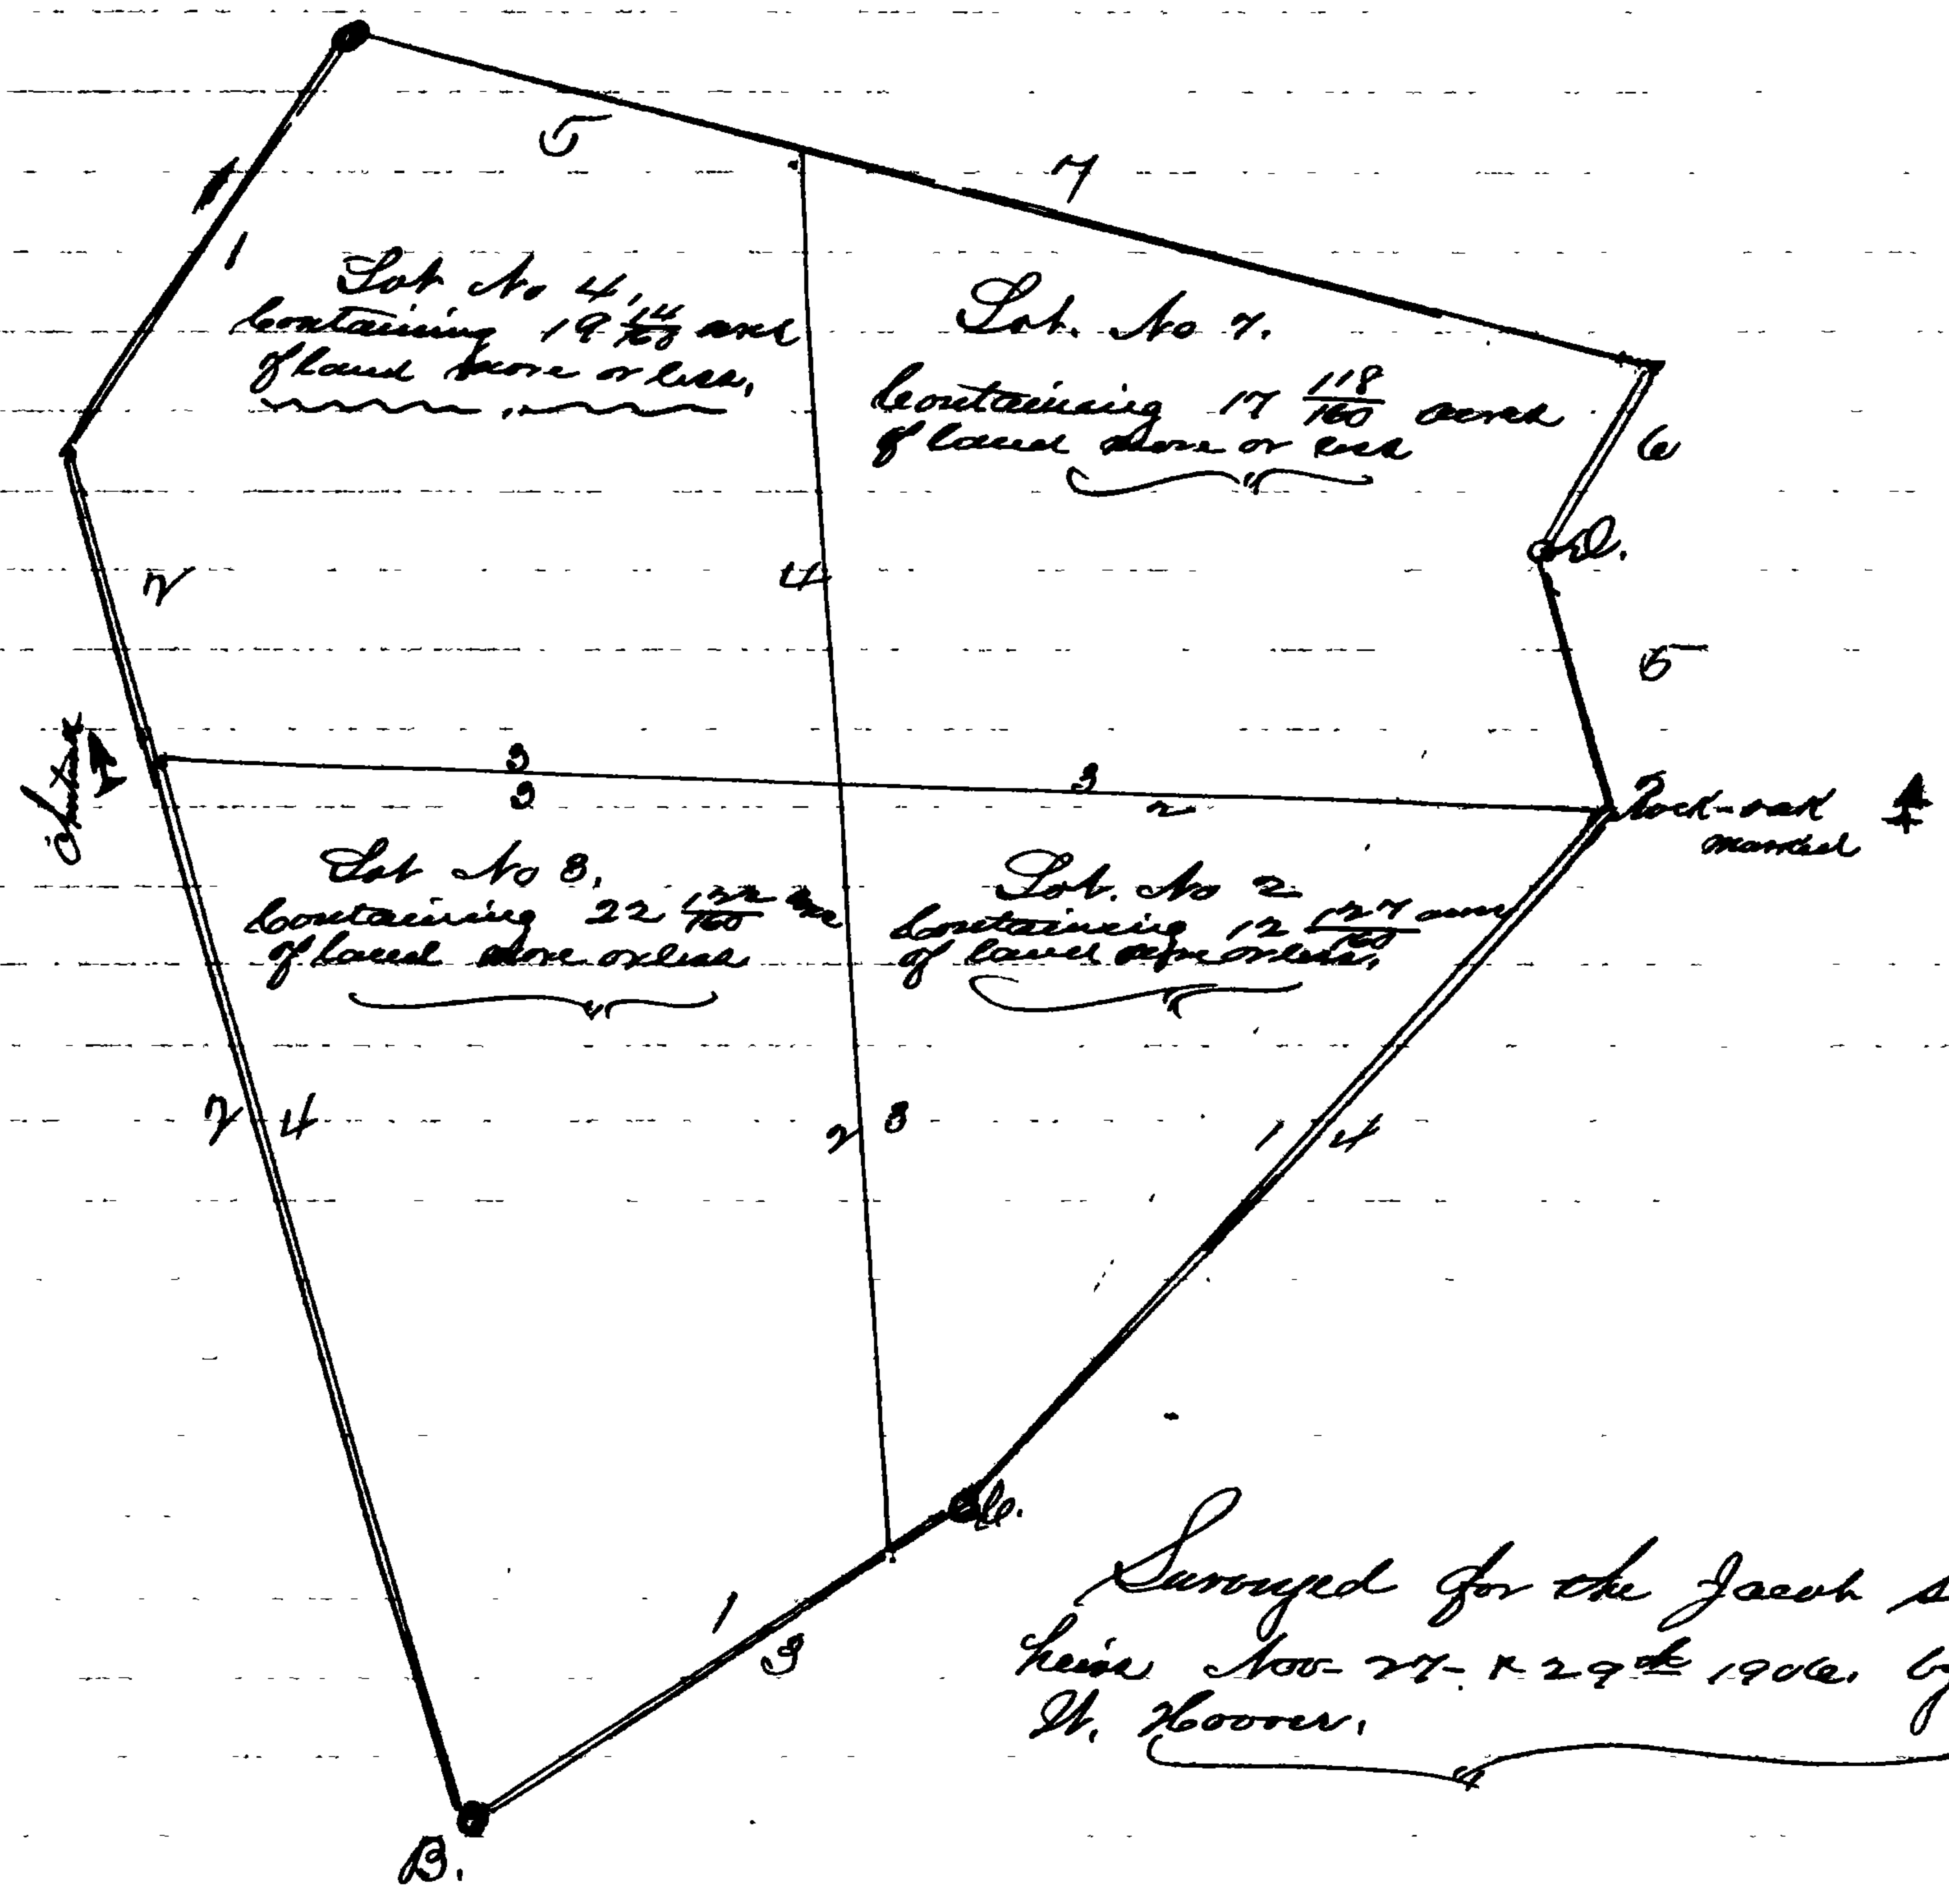 5
7
1
1
Lot. No 4,
Containing 19 14/160 acre
of land more or less,
Lot. No 7.
Containing 17 118/160 acres
of land more or less
6
D.
2
4
5
3
3
3
2
Rock-oak
marked
Lot No 3,
Containing 22 122/160 acre
of land more or less
Lot. No 2
Containing 12 127/160 acres
of land more or less,
2
4
2
3
1
4
C.
1
3
B.
Surveyed for the Jacob
heirs Nov- 27- & 29th 1906. by
W. Hoover.